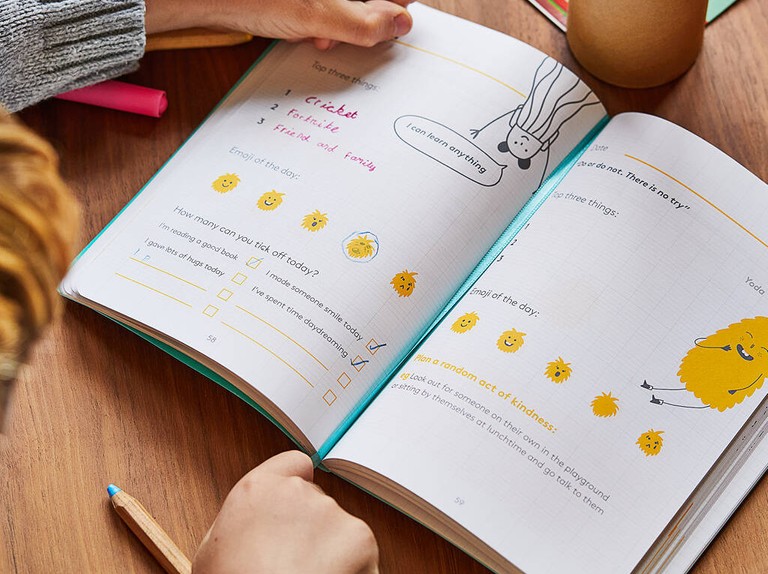 Top three things:
1 Cricket
2 Fortnite
3 Friends and family
I can learn anything
Emoji of the day:
How many can you tick off today?
I'm reading a good book
I gave lots of hugs today
I made someone smile today
I've spent time daydreaming
58
Date
Do or do not. There is no try"
Yoda
Top three things:
1
2
3
Emoji of the day:
Plan a random act of kindness:
eg Look out for someone on their own in the playground
or sitting by themselves at lunchtime and go talk to them
59